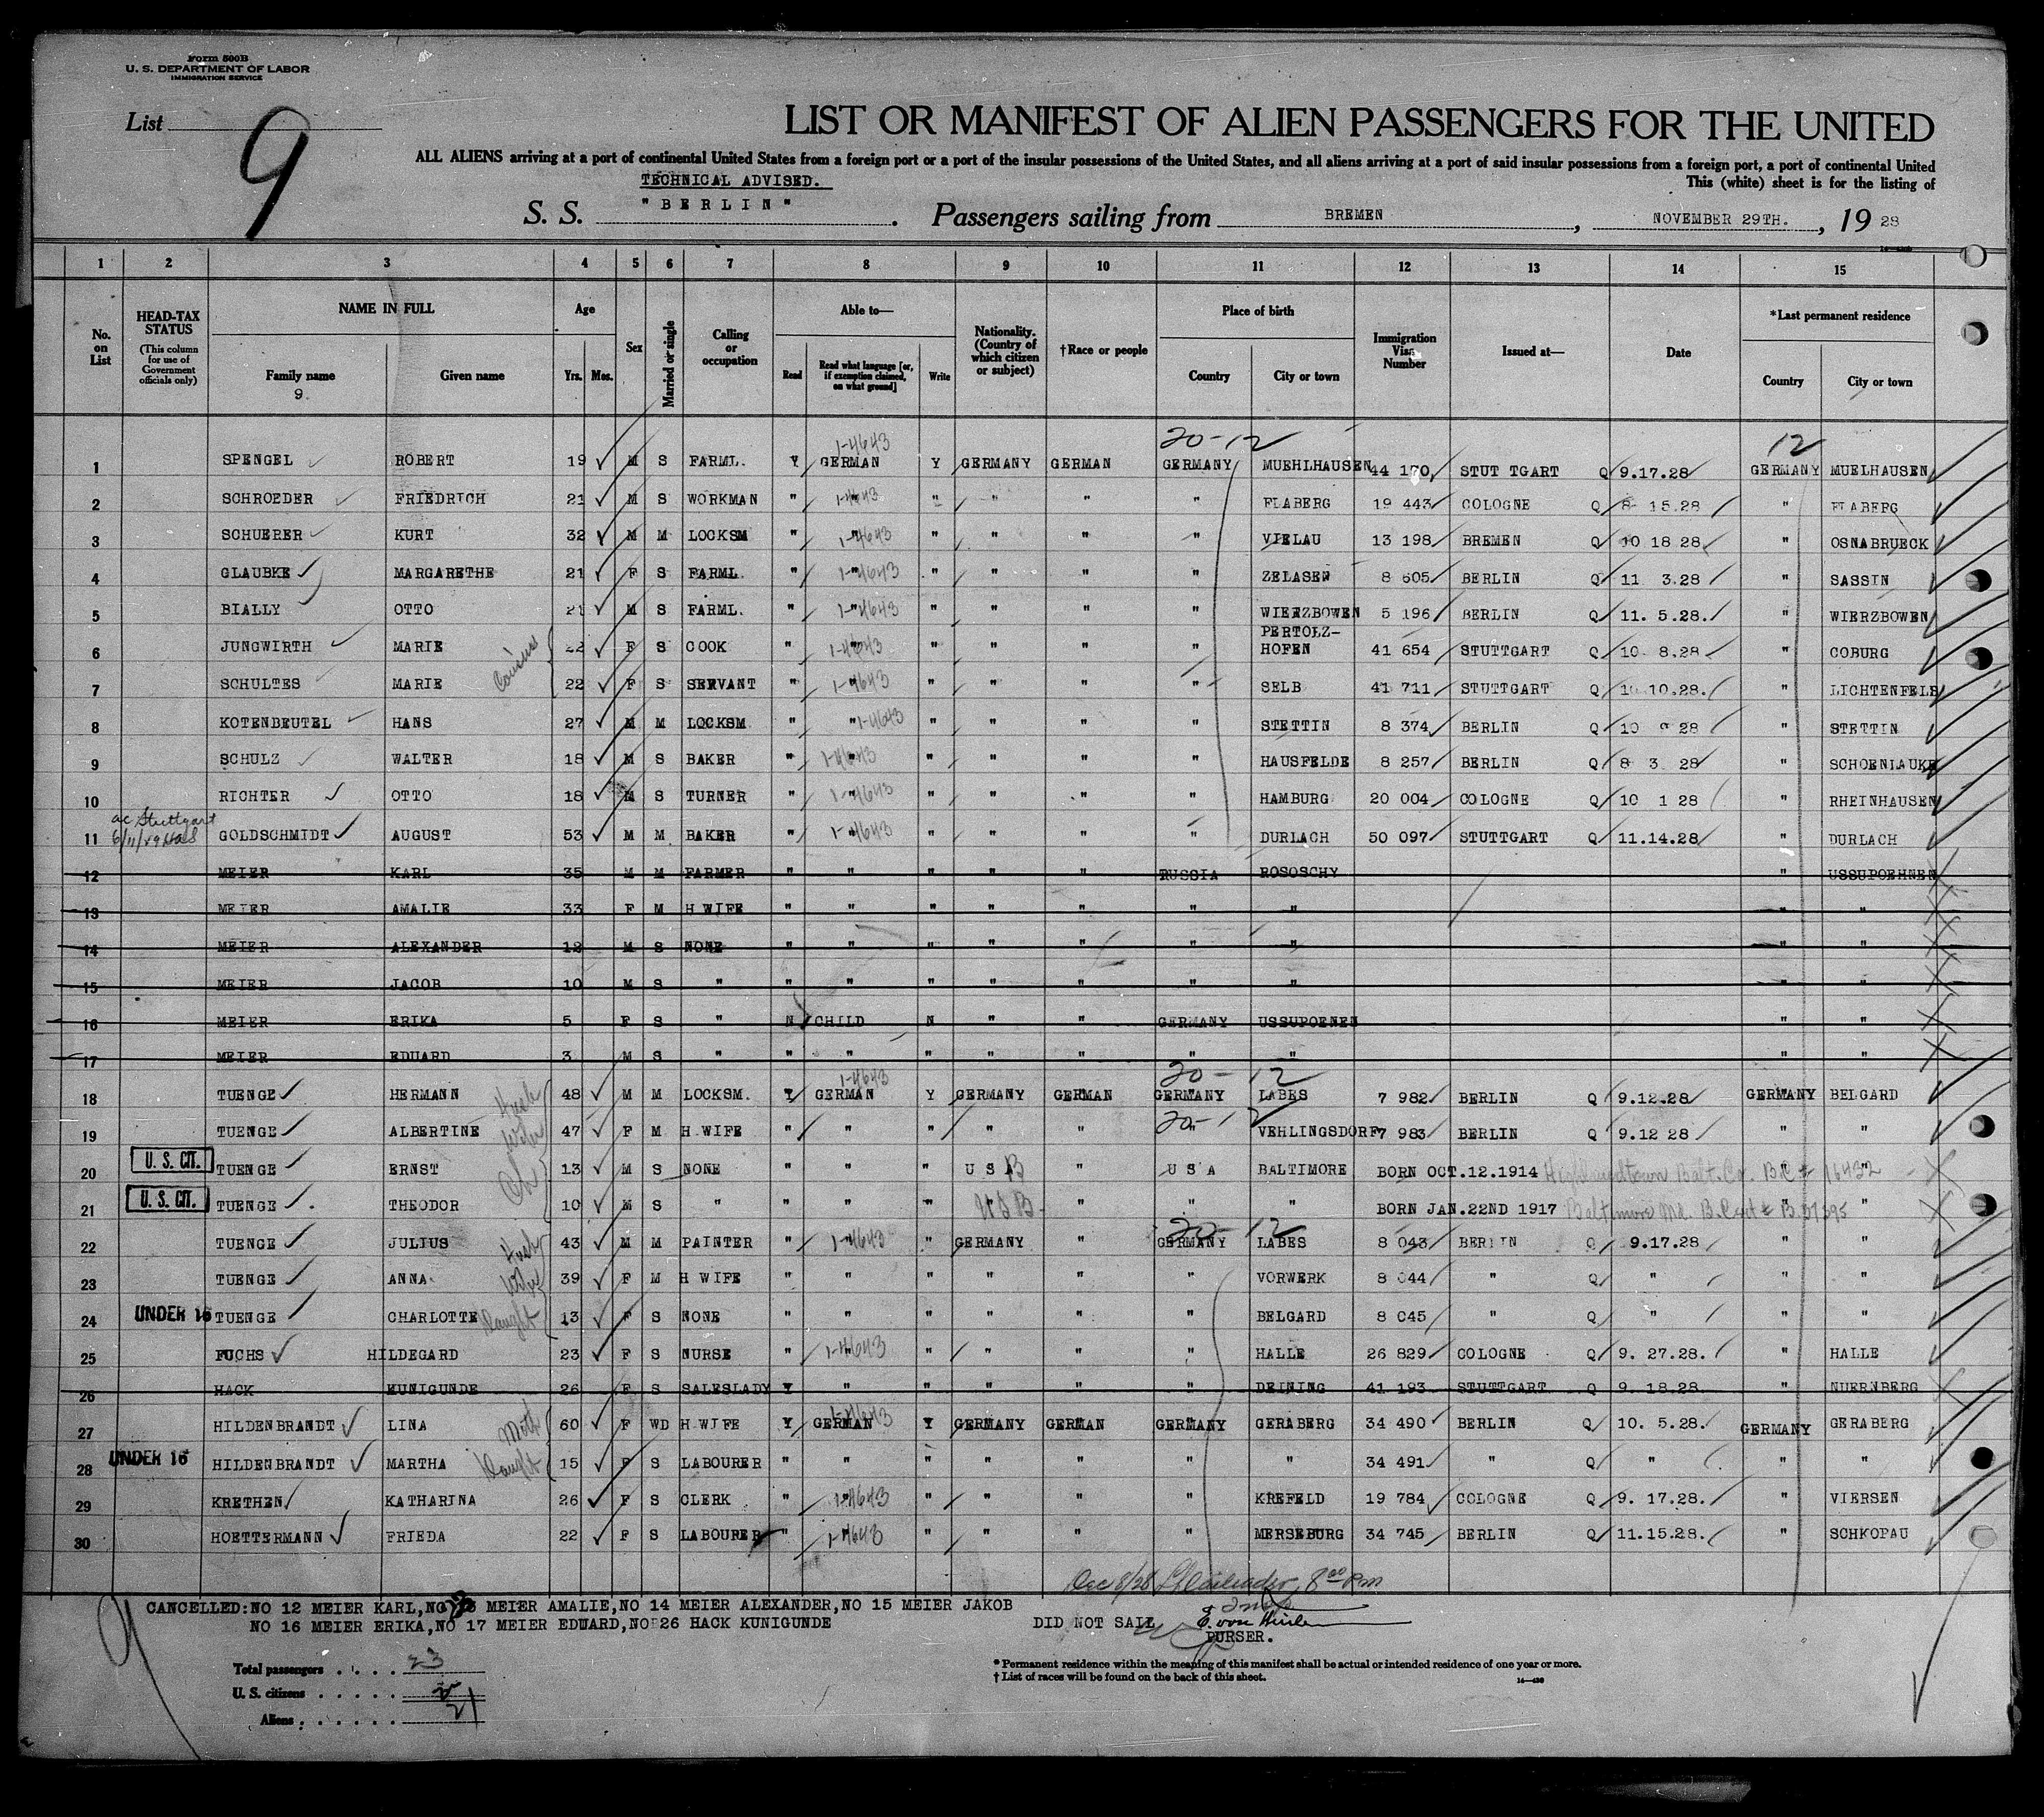 Form 500B
U. S. DEPARTMENT OF LABOR
IMMIGRATION SERVICE
List 9
LIST OR MANIFEST OF ALIEN PASSENGERS FOR THE UNITED
ALL ALIENS arriving at a port of continental United States from a foreign port or a port of the insular possessions of the United States, and all aliens arriving at a port of said insular possessions from a foreign port, a port of continental United
TECHNICAL ADVISED. This (white) sheet is for the listing of
S. S. "BERLIN". Passengers sailing from BREMEN, NOVEMBER 29TH., 19 28
1 2 3 4 5 6 7 8 9 10 11 12 13 14 15
No. on List
HEAD-TAX STATUS
(This column for use of Government officials only)
NAME IN FULL
Family name
9.
Given name
Age
Yrs. Mos.
Sex
Married or single
Calling or occupation
Able to—
Read
Read what language [or, if exemption claimed, on what ground]
Write
Nationality. (Country of which citizen or subject)
†Race or people
Place of birth
Country
City or town
Immigration Visa Number
Issued at—
Date
*Last permanent residence
Country
City or town
1-4643 20-12 12
1 SPENGEL ROBERT 19 M S FARML. Y GERMAN Y GERMANY GERMAN GERMANY MUEHLHAUSEN 44 170 STUT TGART Q 9.17.28 GERMANY MUELHAUSEN
2 SCHROEDER FRIEDRICH 21 M S WORKMAN " 1-4643 " " " " FLABERG 19 443 COLOGNE Q 8 15.28 " FLABERG
3 SCHUERER KURT 32 M M LOCKSM " 1-4643 " " " " VIELAU 13 198 BREMEN Q 10 18 28 " OSNABRUECK
4 GLAUBKE MARGARETHE 21 F S FARML. " 1-4643 " " " " ZELASEN 8 605 BERLIN Q 11 3.28 " SASSIN
5 BIALLY OTTO 21 M S FARML. " 1-4643 " " " " WIERZBOWEN 5 196 BERLIN Q 11. 5.28. " WIERZBOWEN
6 JUNGWIRTH MARIE 22 F S COOK " 1-4643 " " " " PERTOLZ-HOFEN 41 654 STUTTGART Q 10 8.28 " COBURG
Cousins
7 SCHULTES MARIE 22 F S SERVANT " 1-4643 " " " " SELB 41 711 STUTTGART Q 10 10.28. " LICHTENFELS
8 KOTENBEUTEL HANS 27 M M LOCKSM. " " 1-4643 " " " " STETTIN 8 374 BERLIN Q 10 9 28 " STETTIN
9 SCHULZ WALTER 18 M S BAKER " 1-4643 " " " " HAUSFELDE 8 257 BERLIN Q 8 3 28 " SCHOENLAUKE
10 RICHTER OTTO 18 M S TURNER " 1-4643 " " " " HAMBURG 20 004 COLOGNE Q 10 1 28 " RHEINHAUSEN
ac Stuttgart
6/11/29
11 GOLDSCHMIDT AUGUST 53 M M BAKER " 1-4643 " " " " DURLACH 50 097 STUTTGART Q 11.14.28 " DURLACH
12 MEIER KARL 35 M M FARMER " " " " " RUSSIA ROSOSCHY " USSUPOEHNEN
13 MEIER AMALIE 33 F M H WIFE " " " " " " " " "
14 MEIER ALEXANDER 12 M S NONE " " " " " " " " "
15 MEIER JACOB 10 M S " " " " " " " " " "
16 MEIER ERIKA 5 F S " N CHILD N " " GERMANY USSUPOENEN " "
17 MEIER EDUARD 3 M S " " " " " " " " " "
1-4643 20-12
18 TUENGE HERMANN 48 M M LOCKSM. Y GERMAN Y GERMANY GERMAN GERMANY LABES 7 982 BERLIN Q 9.12.28 GERMANY BELGARD
Husb
20-12
19 TUENGE ALBERTINE 47 F M H.WIFE " " " " " " VEHLINGSDORF 7 983 BERLIN Q 9.12 28 " "
Wife
20 U. S. CIT. TUENGE ERNST 13 M S NONE " " " U S A " U S A BALTIMORE BORN OCT.12.1914 Highlandtown Balt. Co. B.C # 16432 " "
Ch
21 U. S. CIT. TUENGE THEODOR 10 M S " " " " USB " " " BORN JAN.22ND 1917 Baltimore Md. B. Cert # B.37395 " "
20-12
22 TUENGE JULIUS 43 M M PAINTER " 1-4643 " GERMANY " GERMANY LABES 8 043 BERLIN Q 9.17.28 " "
Husb
23 TUENGE ANNA 39 F M H WIFE " " " " " " VORWERK 8 044 " Q " " "
Wife
24 UNDER 16 TUENGE CHARLOTTE 13 F S NONE " " " " " " BELGARD 8 045 " Q " " "
Daught
25 FUCHS HILDEGARD 23 F S NURSE " 1-4643 " " " " HALLE 26 829 COLOGNE Q 9. 27.28. " HALLE
26 HACK KUNIGUNDE 26 F S SALESLADY Y " " " " " DEINING 41 193 STUTTGART Q 9.18.28 " NUERNBERG
1-4643
27 HILDENBRANDT LINA 60 F WD H WIFE Y GERMAN Y GERMANY GERMAN GERMANY GERABERG 34 490 BERLIN Q 10. 5.28. GERMANY GERABERG
Moth
28 UNDER 16 HILDENBRANDT MARTHA 15 F S LABOURER " " " " " " " 34 491 " Q " " "
Daught
29 KRETHEN KATHARINA 26 F S CLERK " 1-4643 " " " " KREFELD 19 784 COLOGNE Q 9. 17.28. " VIERSEN
30 HOETTERMANN FRIEDA 22 F S LABOURER " 1-4643 " " " " MERSEBURG 34 745 BERLIN Q 11.15.28. " SCHKOPAU
Dec 8/28 8 00 Pm
CANCELLED:NO 12 MEIER KARL,NO 13 MEIER AMALIE,NO 14 MEIER ALEXANDER,NO 15 MEIER JAKOB
NO 16 MEIER ERIKA,NO 17 MEIER EDUARD,NO 26 HACK KUNIGUNDE DID NOT SAIL
PURSER.
Total passengers . . . . 23
U. S. citizens . . . . . 2
Aliens . . . . . . 21
* Permanent residence within the meaning of this manifest shall be actual or intended residence of one year or more.
† List of races will be found on the back of this sheet.